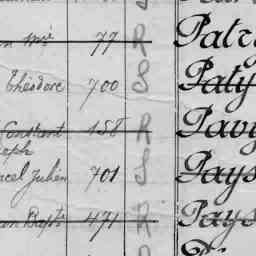 77 R Patr
Théodore 700 S Paty
Constant 158 R Pavy
oseph
arcel Julien 701 S Pays
an Bapte 471 R Pays